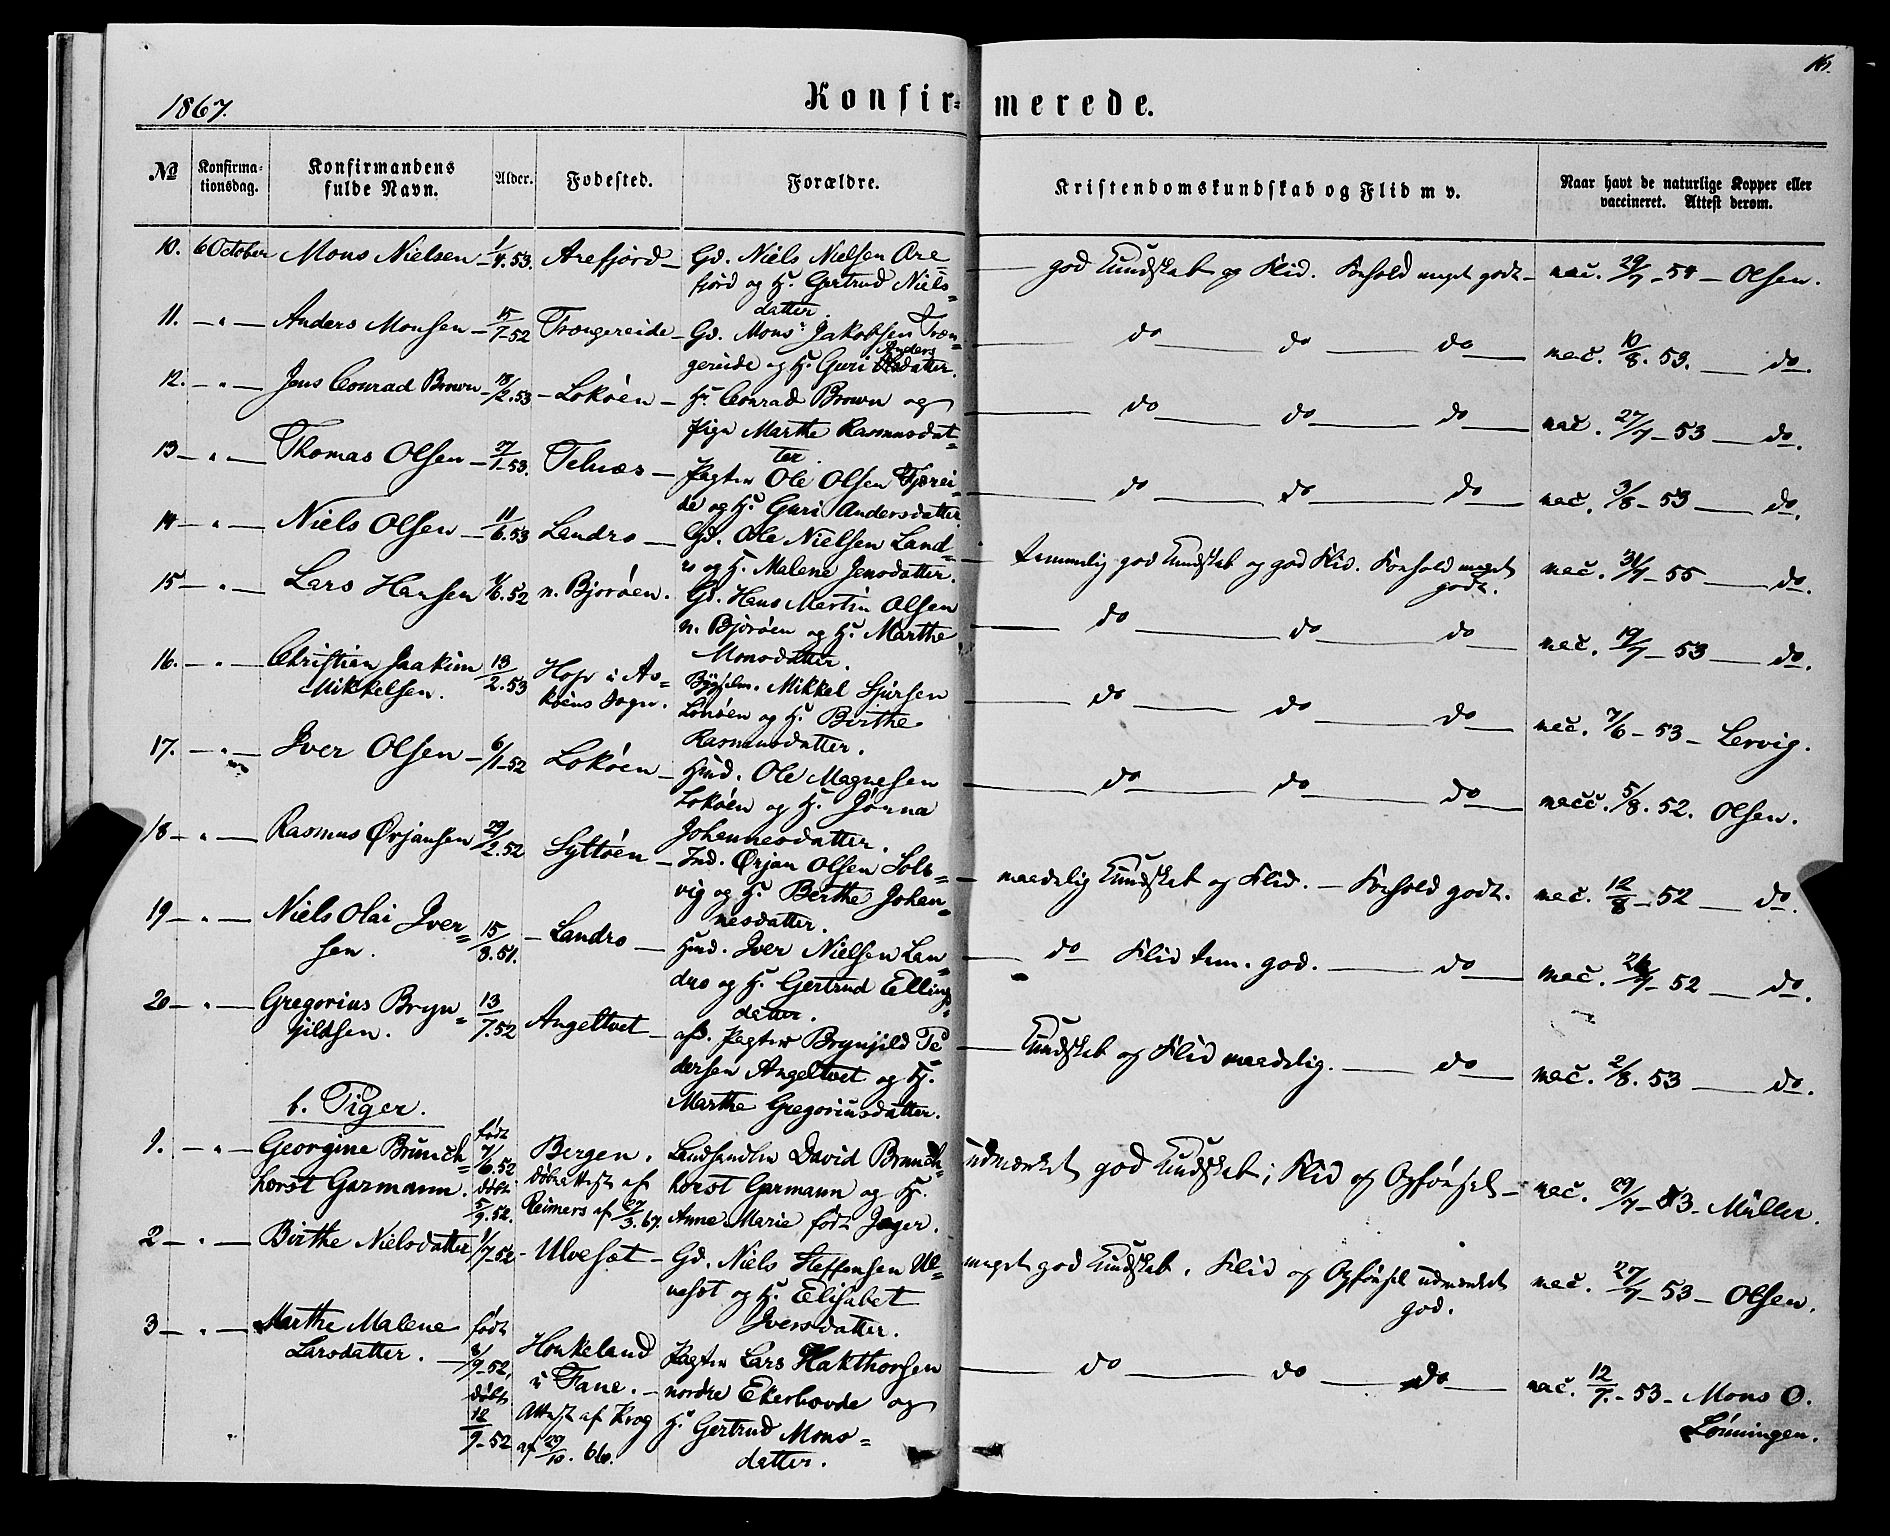 1867.
Konfirmerede.
16.
No
Konfirmationsdag.
Konfirmandens fulde Navn.
Alder.
Fodested.
Forældre.
Kristendomskundskab og Flid m v.
Naar havt de naturlige Kopper eller vaccineret. Attest derom.
10. 6 October Mons Nielsen 1/4.53. Arefjord Gd. Niels Nielsen Are= fjord og H. Gertrud Niels= datter. god Kundskab og Flid. Forhold meget godt vac. 29/7 - 54 - Olsen.
11. - " - Anders Monsen 15/7-52 Trængereide Gd. Mons Jakobsen Træn= gereide og H. Guri Andersdatter. do do do vac. 10/8. 53. do.
12. - " - Jens Conrad Brown 18/2.53 Lokøen Hr. Conrad Brown og Pige Marthe Rasmusdat= ter. do do do vac. 27/7 - 53 do.
13 - " - Thomas Olsen 27/1.53. Telnæs Pagter Ole Olsen Fjærei= de og H. Guri Andersdatter do do do vac. 3/8 - 53 do.
14 - " - Niels Olsen 11/6.53 Landro Gd. Ole Nielsen Land= ro og H. Malene Jensdatter. temmelig god Kundskab og god Flid. Forhold meget godt. vac. 31/7 - 55 do.
15 - " - Lars Hansen /6.52 n. Bjorøen. Gd. Hans Martin Olsen n. Bjorøen og H. Marthe Monsdatter. do do do vac. 19/7 - 53 do.
16. - " - Christian Joakim Mikkelsen. 13/2.53 Hop i As= køens Sogn. Bygselm. Mikkel Sjursen Lonøen og H. Birthe Rasmusdatter. do do do vac. 7/6 - 53 - Lervig.
17. - " - Iver Olsen 6/1-52 Lokøen Husd. Ole Magnesen Lokøen og H. Jørna Johannesdatter. do do do vacc. 5/8. 52. Olsen.
18 - " - Rasmus Ørjansen 29/2.52 Syltøen Ind. Ørjan Olsen Sols= vig og H. Berthe Johan= nesdatter. maadelig Kundskab og Flid. - Forhold godt. vac. 12/8 - 52 do.
19 - " - Niels Olai Iver= sen. 15/8.51. Landro Husd. Iver Nielsen Lan= dro og H. Gertrud Ellings= datter. do Flid tem. god. do vac. 26/7 - 52 do.
20 - " - Gregorius Bryn= jildsen. 13/7.52 Angeltvet afd. Pagter Brynjild Pe= dersen Angeltvet og H. Marthe Gregoriusdatter. Kundskab og Flid maadelig. do vac. 2/8. 53 do.
b. Piger.
1. - " - Georgine Brunch= horst Garmann. født 7/6.52 døbt 5/9.52. Bergen. Døbeattest af Reimers af 27/3.67. Landhandler David Brunch= horst Garmann og H. Anne Marie født Jager. udmærket god Kundskab, Flid og Opførsel - vac. 29/7 - 53 - Müller.
2 - " - Birthe Nielsdatter 1/7-52 Ulveset Gd. Niels Steffensen Ul= veset og H. Elisabet Iversdatter. meget god Kundskab. Flid og Opførsel udmærket god. vac. 27/7 - 53 - Olsen.
3 - " - Marthe Malene Larsdatter. født 8/9-52, døbt 12/9-52 Honkeland i Fane. Attest af Krog af 27/10. 66. Pagter Lars Hakthorsen nordre Ekerhovde og H. Gertrud Mons= datter. do do do vac. 12/7. - 53 - Mons O. Lønningen.